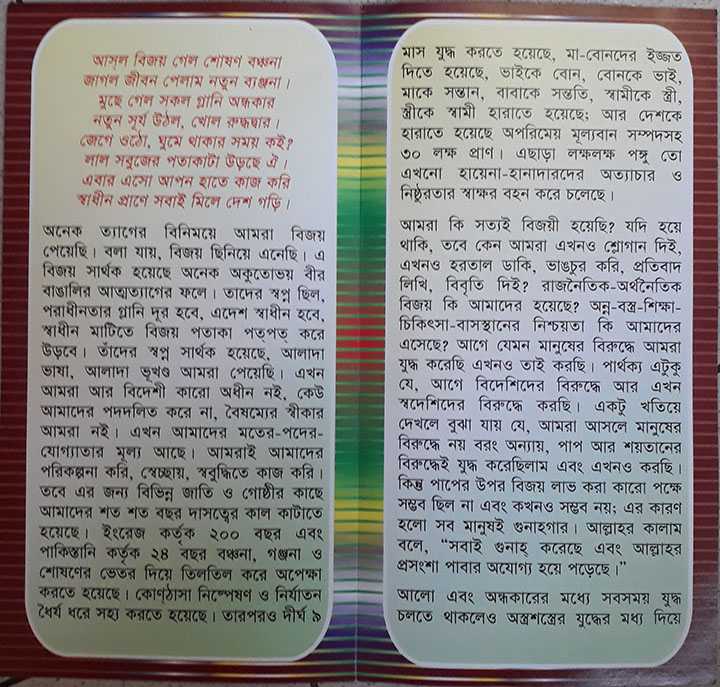 আসল বিজয় গেল শোষণ বঞ্চনা
জাগল জীবন পেলাম নতুন ব্যঞ্জনা।
মুছে গেল সকল গ্লানি অন্ধকার
নতুন সূর্য উঠল, খোল রুদ্ধদ্বার।
জেগে ওঠো, ঘুমে থাকার সময় কই?
লাল সবুজের পতাকাটা উড়ছে ঐ।
এবার এসো আপন হাতে কাজ করি
স্বাধীন প্রাণে সবাই মিলে দেশ গড়ি।
অনেক ত্যাগের বিনিময়ে আমরা বিজয়
পেয়েছি। বলা যায়, বিজয় ছিনিয়ে এনেছি। এ
বিজয় সার্থক হয়েছে অনেক অকুতোভয় বীর
বাঙালির আত্মত্যাগের ফলে। তাদের স্বপ্ন ছিল,
পরাধীনতার গ্লানি দূর হবে, এদেশ স্বাধীন হবে,
স্বাধীন মাটিতে বিজয় পতাকা পত্‌পত্‌ করে
উড়বে। তাঁদের স্বপ্ন সার্থক হয়েছে, আলাদা
ভাষা, আলাদা ভূখণ্ড আমরা পেয়েছি। এখন
আমরা আর বিদেশী কারো অধীন নই, কেউ
আমাদের পদদলিত করে না, বৈষম্যের স্বীকার
আমরা নই। এখন আমাদের মতের-পদের-
যোগ্যাতার মূল্য আছে। আমরাই আমাদের
পরিকল্পনা করি, স্বেচ্ছায়, স্ববুদ্ধিতে কাজ করি।
তবে এর জন্য বিভিন্ন জাতি ও গোষ্ঠীর কাছে
আমাদের শত শত বছর দাসত্বের কাল কাটাতে
হয়েছে। ইংরেজ কর্তৃক ২০০ বছর এবং
পাকিস্তানি কর্তৃক ২৪ বছর বঞ্চনা, গঞ্জনা ও
শোষণের ভেতর দিয়ে তিলতিল করে অপেক্ষা
করতে হয়েছে। কোণ্ঠাসা নিষ্পেষণ ও নির্যাতন
ধৈর্য ধরে সহ্য করতে হয়েছে। তারপরও দীর্ঘ ৯
মাস যুদ্ধ করতে হয়েছে, মা-বোনদের ইজ্জত
দিতে হয়েছে, ভাইকে বোন, বোনকে ভাই,
মাকে সন্তান, বাবাকে সন্ততি, স্বামীকে স্ত্রী,
স্ত্রীকে স্বামী হারাতে হয়েছে; আর দেশকে
হারাতে হয়েছে অপরিমেয় মূল্যবান সম্পদসহ
৩০ লক্ষ প্রাণ। এছাড়া লক্ষলক্ষ পঙ্গু তো
এখনো হায়েনা-হানাদারদের অত্যাচার ও
নিষ্ঠুরতার স্বাক্ষর বহন করে চলেছে।
আমরা কি সত্যই বিজয়ী হয়েছি? যদি হয়ে
থাকি, তবে কেন আমরা এখনও শ্লোগান দিই,
এখনও হরতাল ডাকি, ভাঙচুর করি, প্রতিবাদ
লিখি, বিবৃতি দিই? রাজনৈতিক-অর্থনৈতিক
বিজয় কি আমাদের হয়েছে? অন্ন-বস্ত্র-শিক্ষা-
চিকিৎসা-বাসস্থানের নিশ্চয়তা কি আমাদের
এসেছে? আগে যেমন মানুষের বিরুদ্ধে আমরা
যুদ্ধ করেছি এখনও তাই করছি। পার্থক্য এটুকু
যে, আগে বিদেশিদের বিরুদ্ধে আর এখন
স্বদেশিদের বিরুদ্ধে করছি। একটু খতিয়ে
দেখলে বুঝা যায় যে, আমরা আসলে মানুষের
বিরুদ্ধে নয় বরং অন্যায়, পাপ আর শয়তানের
বিরুদ্ধেই যুদ্ধ করেছিলাম এবং এখনও করছি।
কিন্তু পাপের উপর বিজয় লাভ করা কারো পক্ষে
সম্ভব ছিল না এবং কখনও সম্ভব নয়; এর কারণ
হলো সব মানুষই গুনাহগার। আল্লাহর কালাম
বলে, “সবাই গুনাহ্ করেছে এবং আল্লাহর
প্রসংশা পাবার অযোগ্য হয়ে পড়েছে।”
আলো এবং অন্ধকারের মধ্যে সবসময় যুদ্ধ
চলতে থাকলেও অস্ত্রশস্ত্রের যুদ্ধের মধ্য দিয়ে